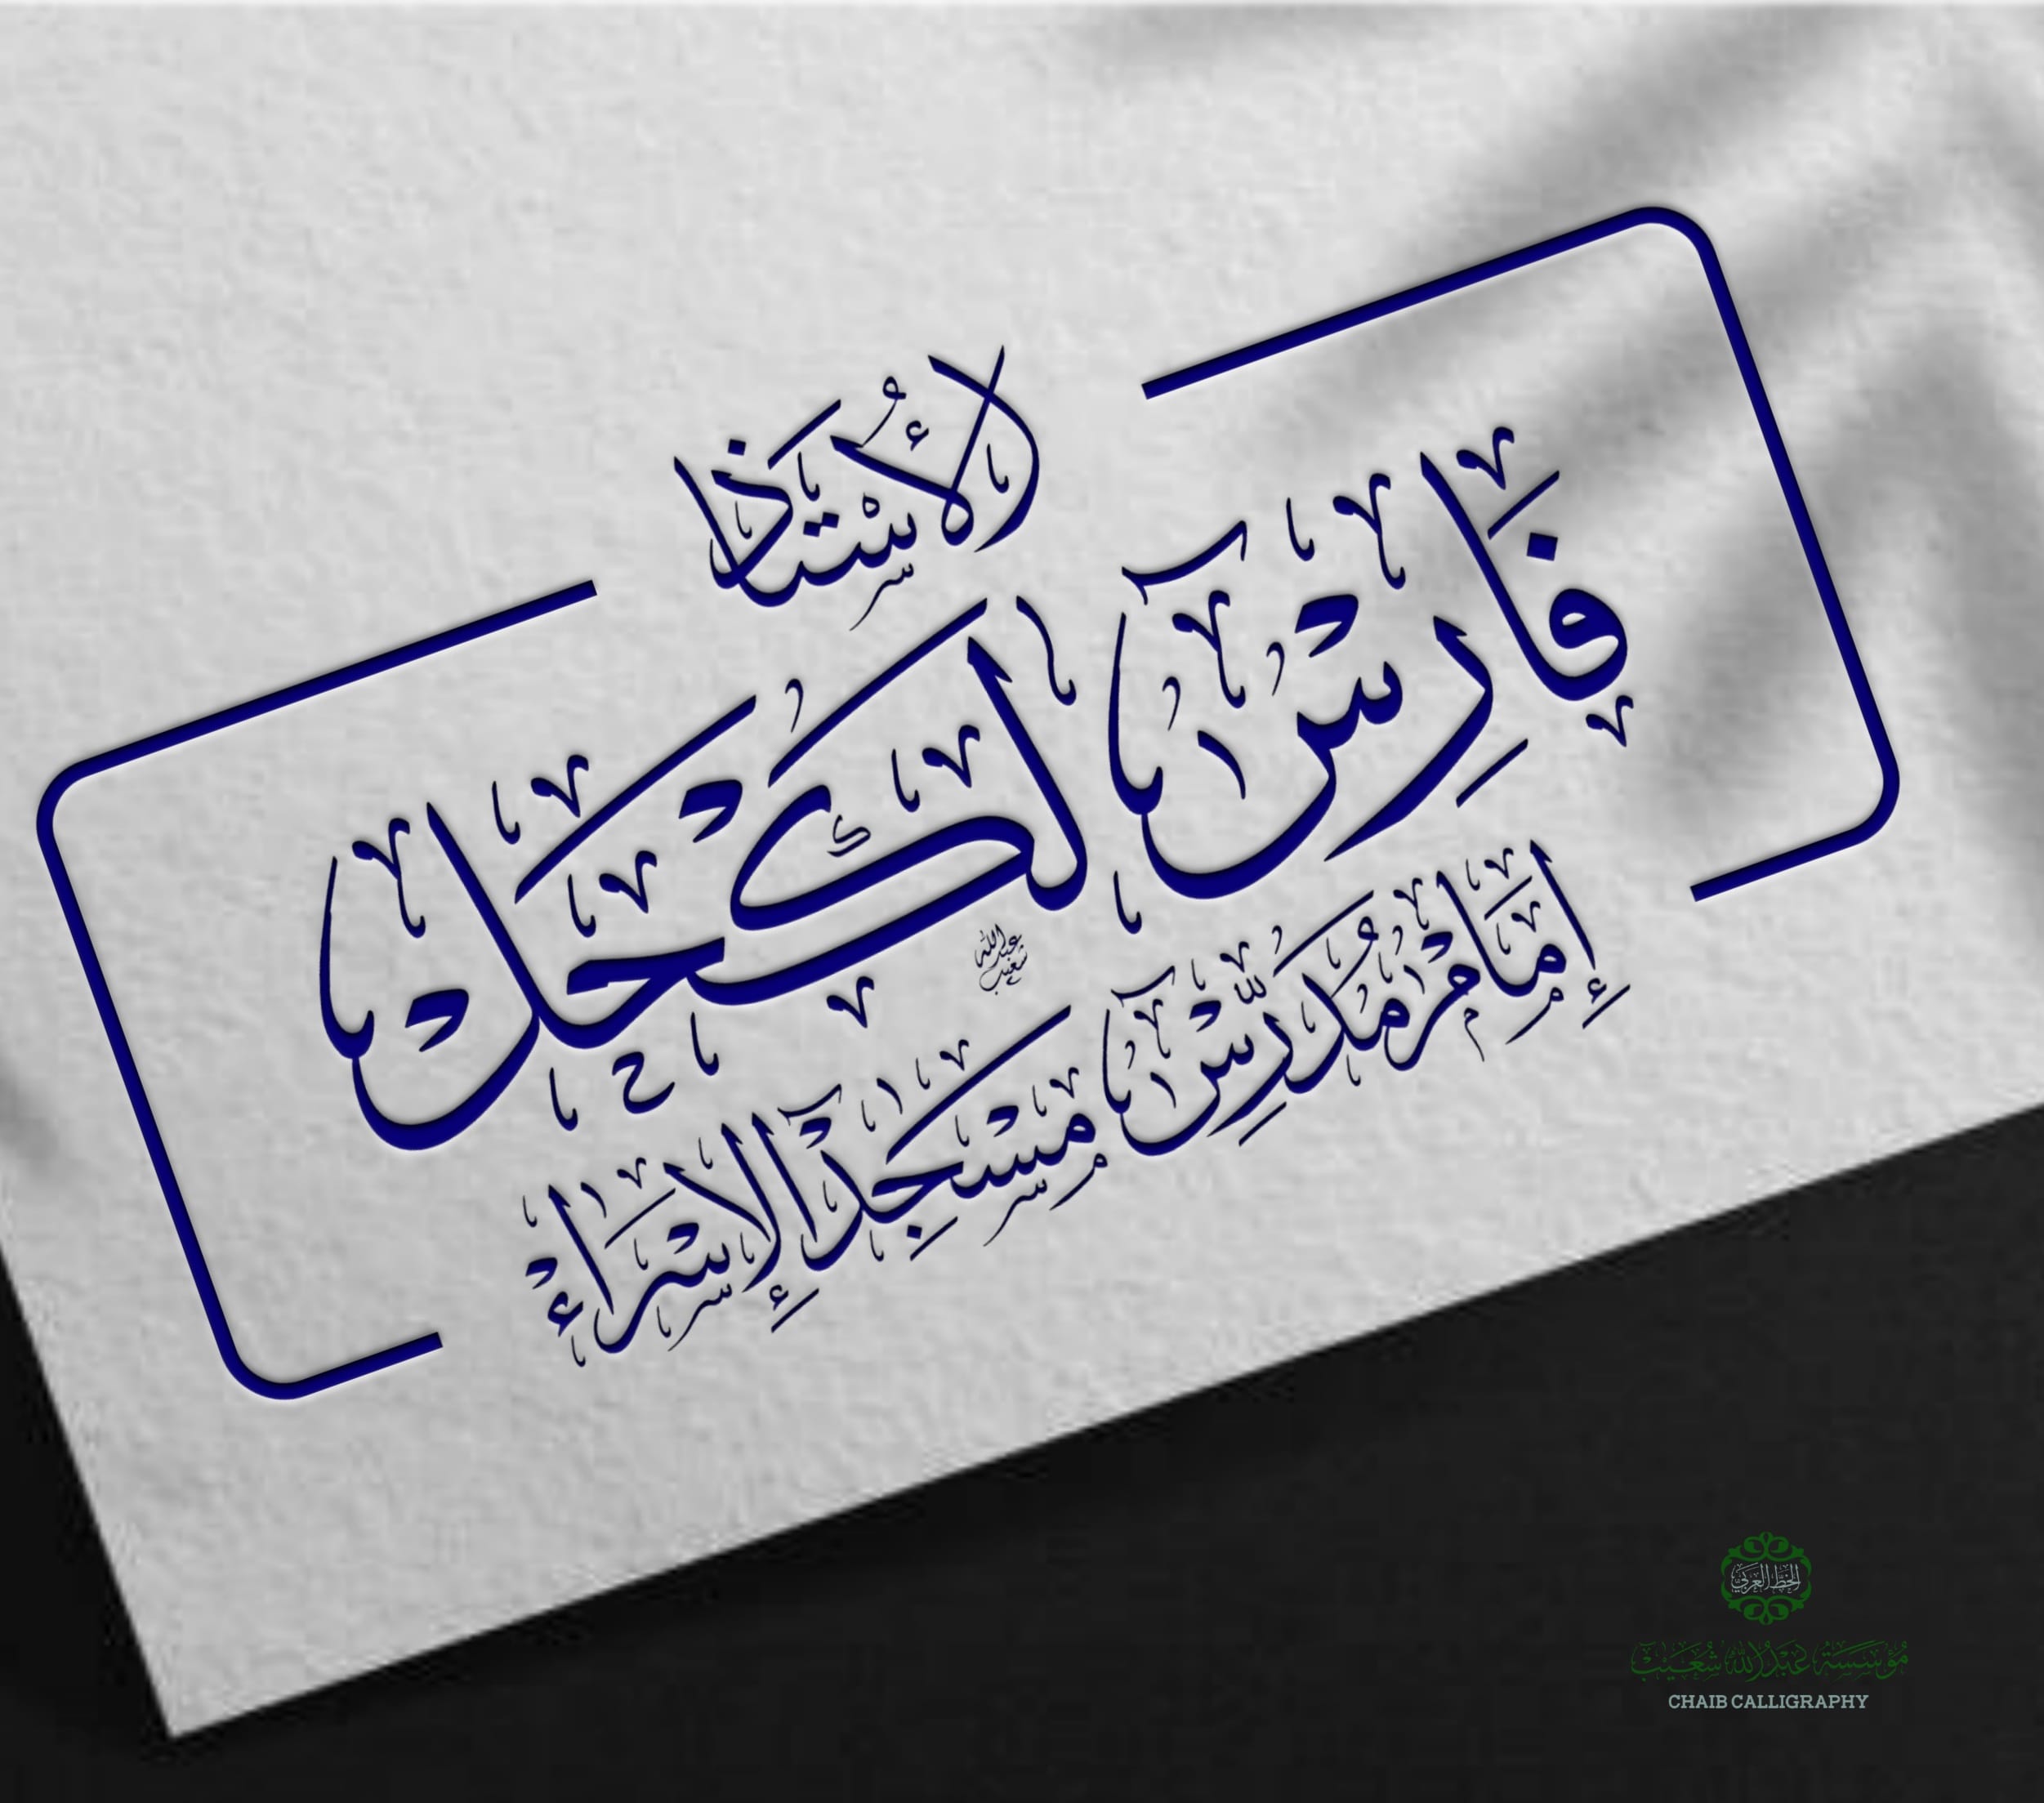 الأُسْتَاذ
فَارِسْ لَكْحَلْ
إِمَامْ مُدَرِّسْ مَسْجِدْ الإِسْرَاءْ
عبد الله شعيب
الخط العربي
مُؤَسَّسَة عَبْدُ الله شُعَيْب
CHAIB CALLIGRAPHY